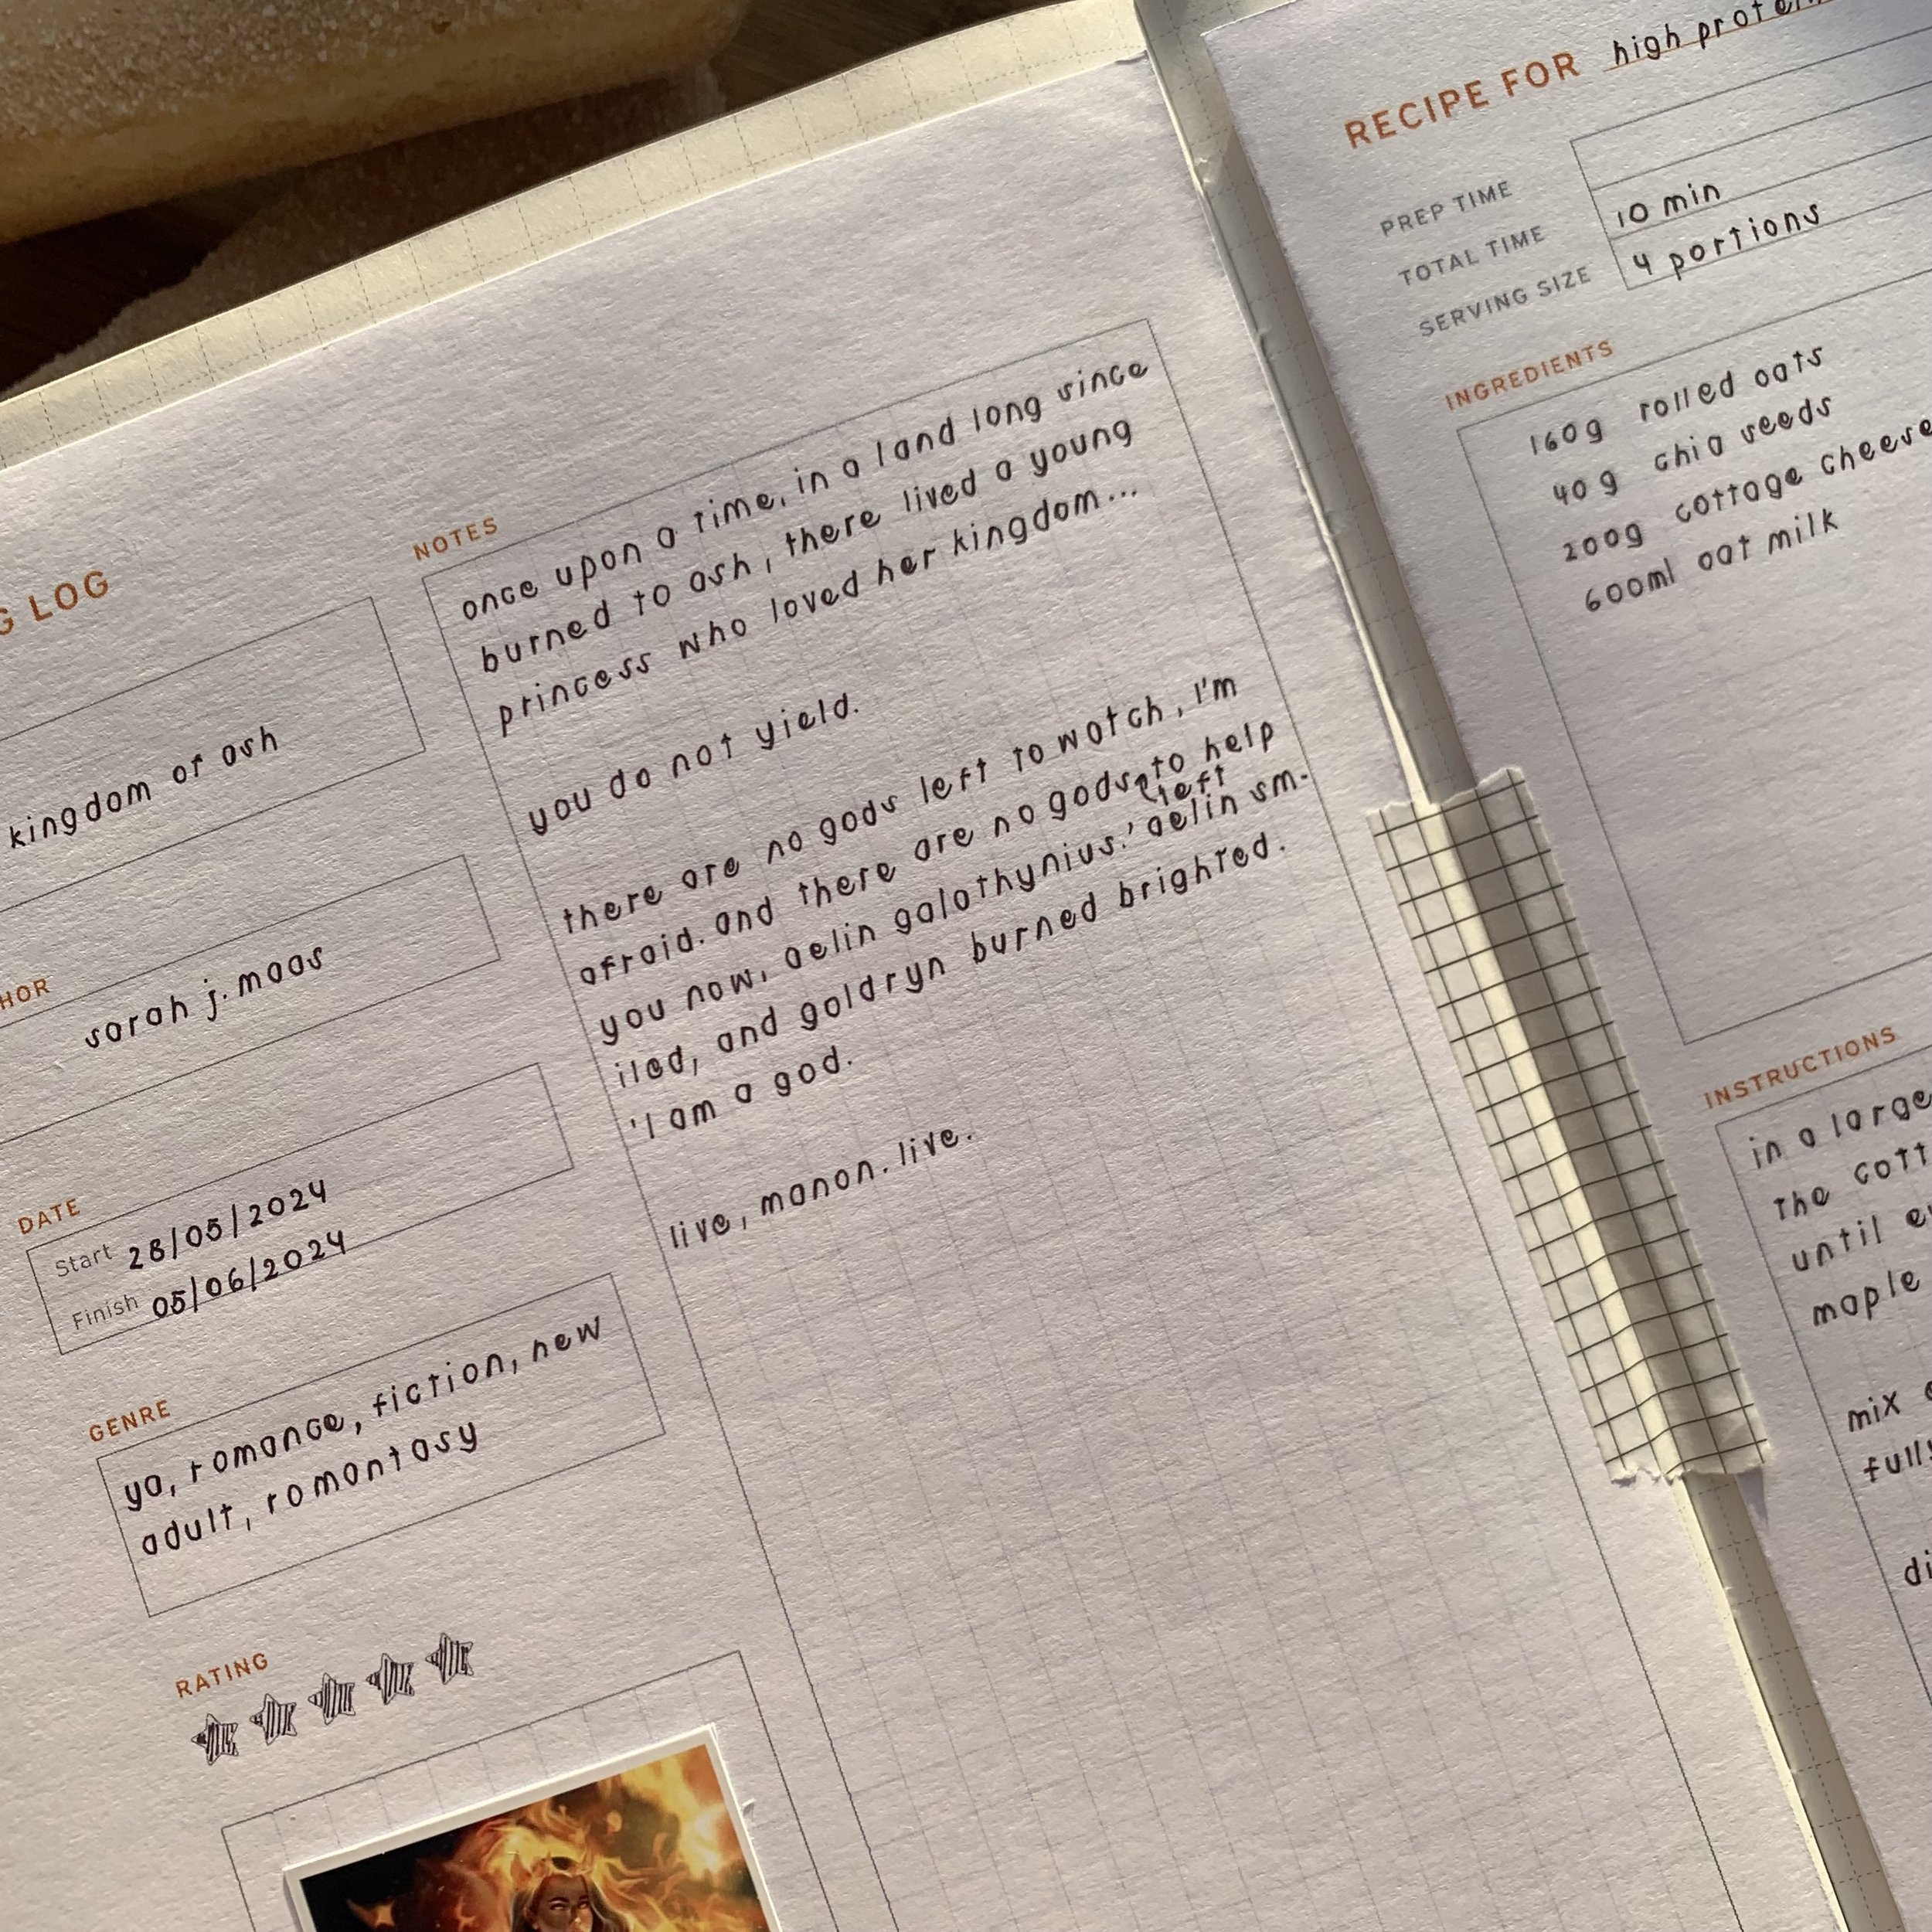 G LOG
kingdom of ash
HOR
sarah j. maas
DATE
Start 28/05/2024
Finish 05/06/2024
GENRE
ya, romance, fiction, new
adult, romantasy
RATING
NOTES
once upon a time, in a land long since
burned to ash, there lived a young
princess who loved her kingdom...
you do not yield.
there are no gods left to watch, I'm
afraid. and there are no gods to help
left
you now, aelin galathynius.' aelin sm-
iled, and goldryn burned brighted.
'I am a god.
live, manon. live.
RECIPE FOR high protein
PREP TIME
TOTAL TIME 10 min
SERVING SIZE 4 portions
INGREDIENTS
160g rolled oats
40g chia seeds
200g cottage cheese
600ml oat milk
INSTRUCTIONS
in a large
the cott
until ev
maple
mix
fully
di